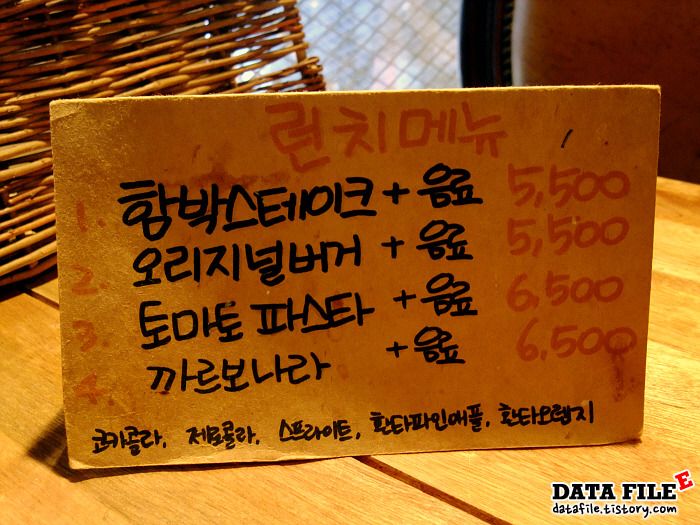 런치메뉴
1. 함박스테이크 + 음료 5,500
2. 오리지널버거 + 음료 5,500
3. 토마토 파스타 + 음료 6,500
4. 까르보나라 + 음료 6,500
코카콜라, 제로콜라, 스프라이트, 환타파인애플, 환타오렌지
DATA FILE E
datafile.tistory.com